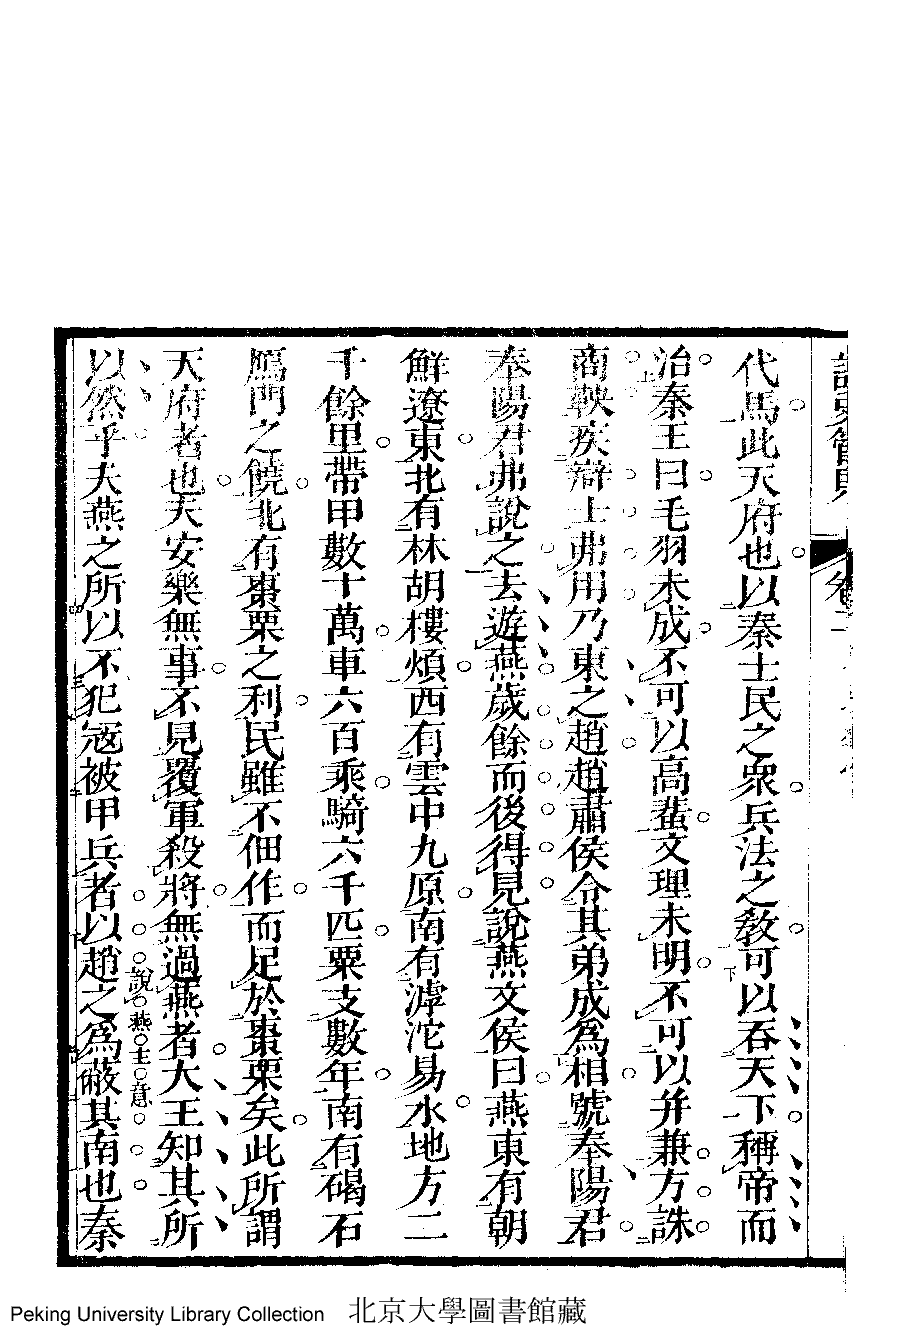 代馬此天府也以秦士民之衆兵法之教可以吞天下稱帝而
治秦王曰毛羽未成不可以高蜚文理未明不可以并兼方誅
商鞅疾辯士弗用乃東之趙趙肅侯令其弟成為相號奉陽君
奉陽君弗說之去遊燕歲餘而後得見說燕文侯曰燕東有朝
鮮遼東北有林胡樓煩西有雲中九原南有滹沱易水地方二
千餘里帶甲數十萬車六百乘騎六千匹粟支數年南有碣石
鴈門之饒北有棗栗之利民雖不佃作而足於棗栗矣此所謂
天府者也夫安樂無事不見覆軍殺將無過燕者大王知其所
說燕主意
以然乎夫燕之所以不犯寇被甲兵者以趙之為蔽其南也秦
Peking University Library Collection 北京大學圖書館藏